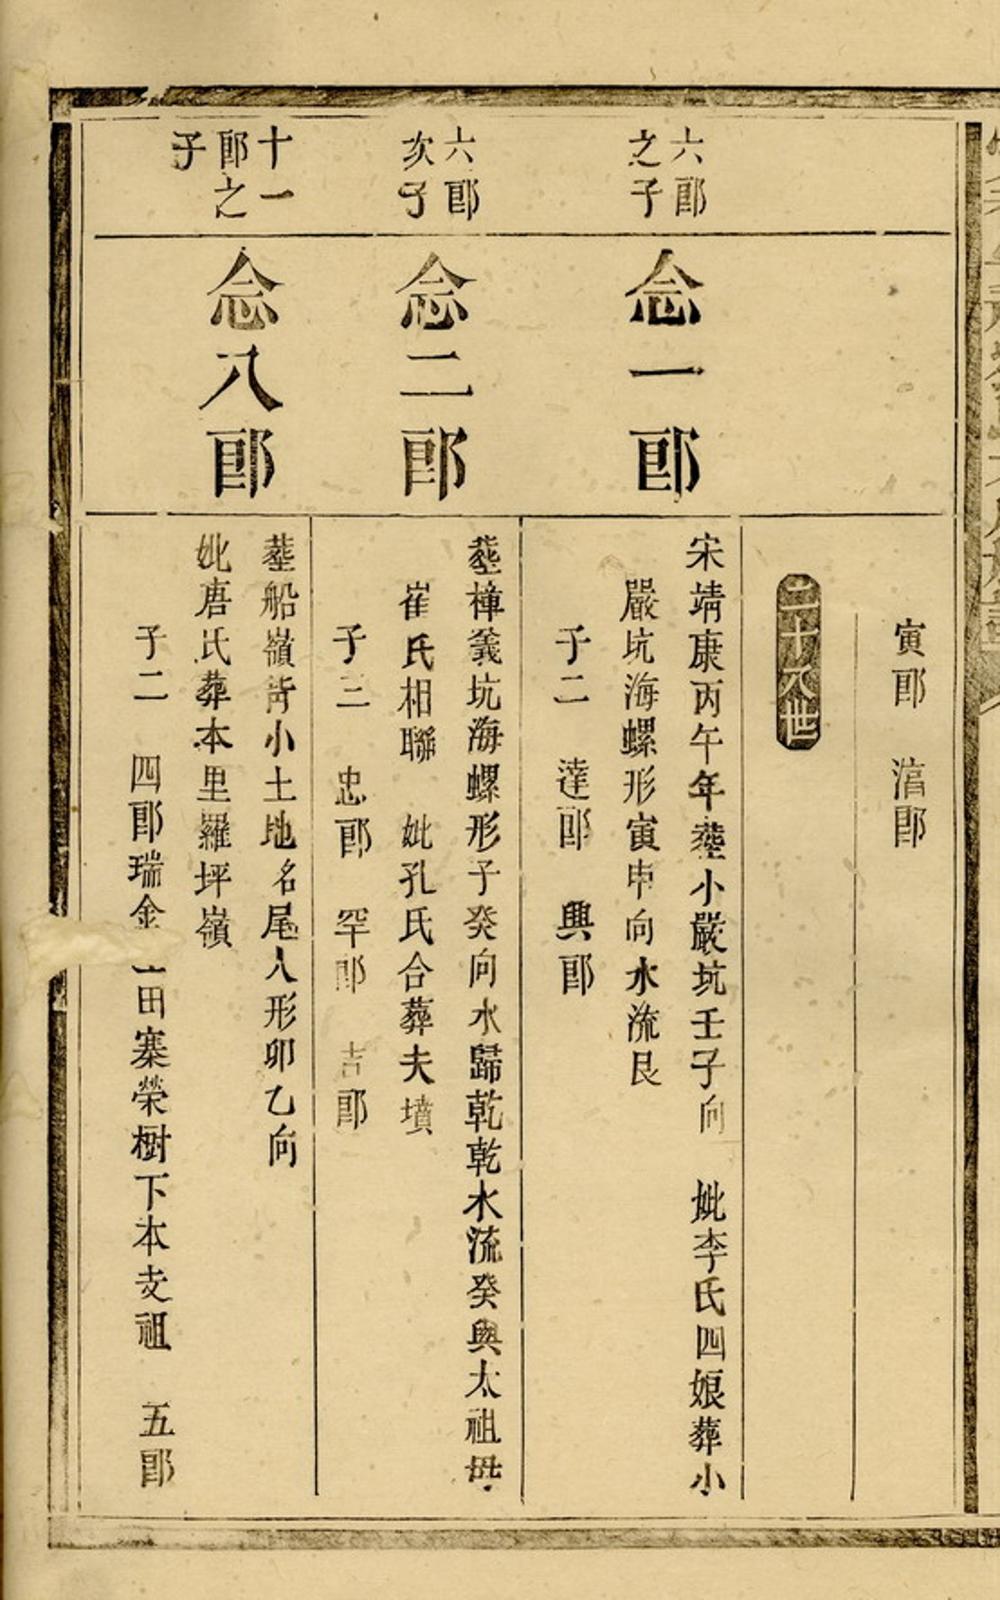 寅郎　㵍郎
二十八世
六郎
之子
念一郎
宋靖康丙午年塟小嚴坑壬子向　妣李氏四娘葬小
嚴坑海螺形寅申向水流艮
子二　達郎　興郎
六郎
次子
念二郎
塟樟義坑海螺形子癸向水歸乾乾水流癸與太祖母
崔氏相聯　妣孔氏合葬夫墳
子三　忠郎　罕郎　吉郎
十一
郎之
子
念八郎
塟船嶺背小土地名尾人形卯乙向
妣唐氏葬本里羅坪嶺
子二　四郎瑞金田寨榮樹下本支祖　五郎